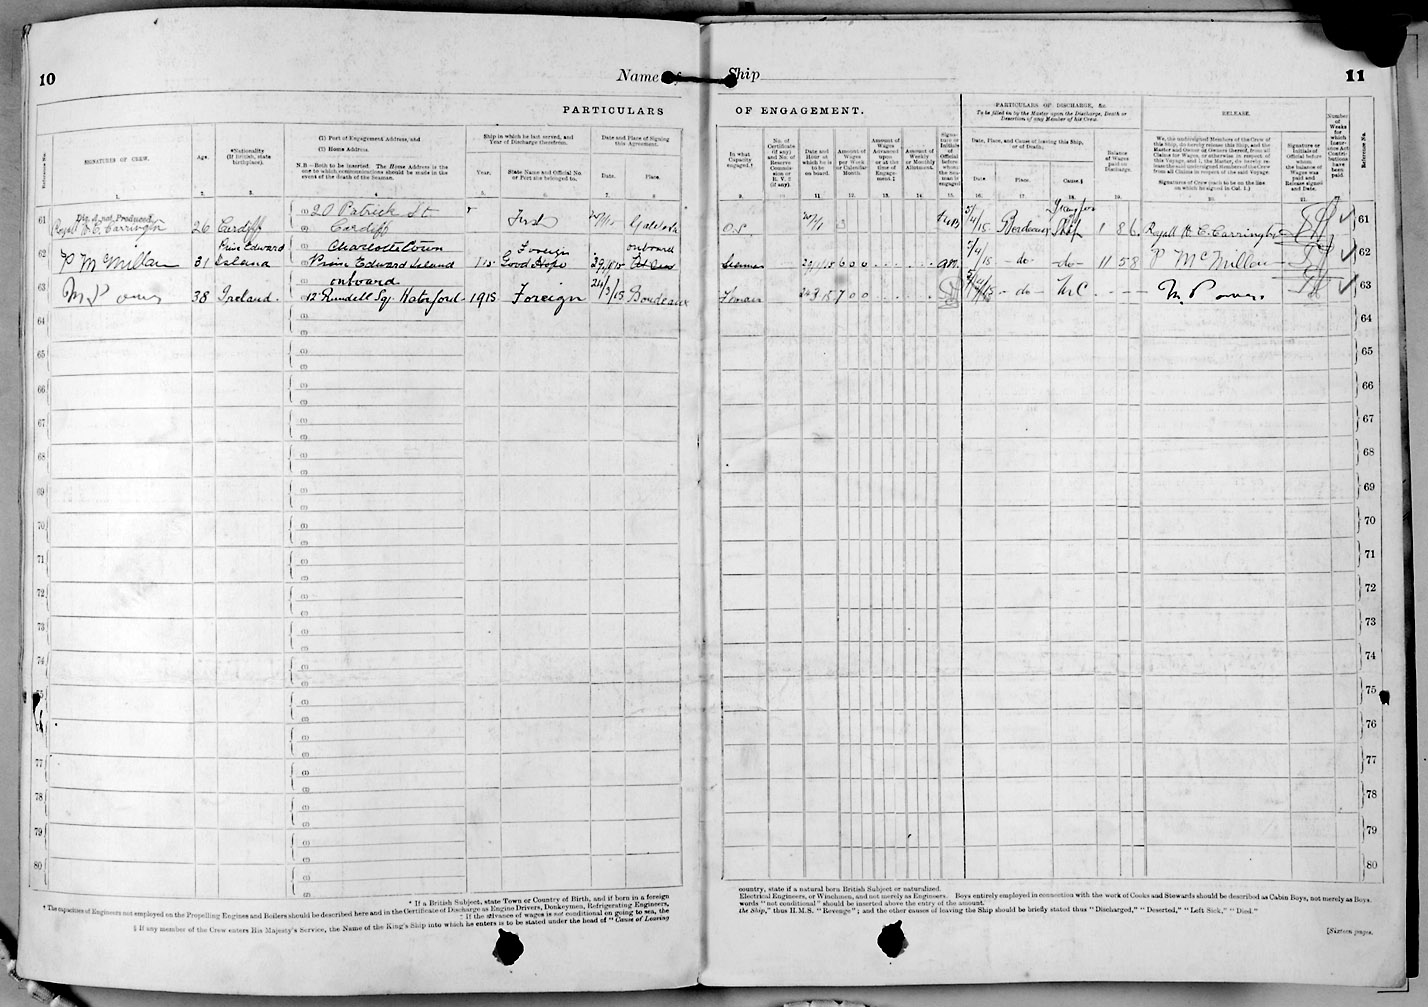 10
Name of Ship
11
PARTICULARS OF ENGAGEMENT.
PARTICULARS OF DISCHARGE, &c.
To be filled in by the Master upon the Discharge, Death or Desertion of any Member of his Crew.
RELEASE.
Reference No.
SIGNATURES OF CREW.
Age.
*Nationality (If British, state birthplace).
(1) Port of Engagement Address, and
(2) Home Address.
N.B.—Both to be inserted. The Home Address is the one to which communications should be made in the event of the death of the Seaman.
Ship in which he last served, and Year of Discharge therefrom.
Year.
State Name and Official No. or Port she belonged to.
Date and Place of Signing this Agreement.
Date.
Place.
In what Capacity engaged.†
No. of Certificate (if any) and No. of Reserve Commission or R. V. 2 (if any).
Date and Hour at which he is to be on board.
Amount of Wages per Week or Calendar Month.
Amount of Wages Advanced upon or at the time of Engagement.‡
Amount of Weekly or Monthly Allotment.
Signature or Initials of Official before whom the Seaman is engaged
Date, Place, and Cause of leaving this Ship, or of Death.
Date
Place.
Cause.§
Balance of Wages paid on Discharge.
We, the undersigned Members of the Crew of this Ship, do hereby release this Ship, and the Master and Owner or Owners thereof, from all Claims for Wages, or otherwise in respect of this Voyage, and I, the Master, do hereby release the undersigned Members of the Crew from all Claims in respect of the said Voyage.
Signatures of Crew (each to be on the line on which he signed in Col. 1.)
Signature or Initials of Official before whom the balance of Wages was paid and Release signed and Date.
Number of Weeks for which Insurance Act Contributions have been paid.
Reference No.
1. 2. 3. 4. 5. 6. 7. 8. 9. 10. 11. 12. 13. 14. 15. 16. 17. 18. 19. 20. 21.
61 Dis. A not Produced
Royall H. C. Carrington 26 Cardiff (1) 20 Patrick St (2) Cardiff First 20/1/15 O.S. 20/1 5/4/15 Bordeaux Ship 1 8 6 Royall H. C. Carrington 61
62 P McMillan 31 Prince Edward Island (1) Charlottetown (2) Prince Edward Island Foreign Good Hope onboard Seaman 6 0 0 5/4/15 -do- -do- 11 5 8 P McMillan 62
63 M Power 38 Ireland. (1) onboard (2) 12 Rundell Sq. Waterford 1915 Foreign 24/3/15 Bordeaux Fireman 7 0 0 -do- M. Power 63
64 (1) (2) 64
65 (1) (2) 65
66 (1) (2) 66
67 (1) (2) 67
68 (1) (2) 68
69 (1) (2) 69
70 (1) (2) 70
71 (1) (2) 71
72 (1) (2) 72
73 (1) (2) 73
74 (1) (2) 74
75 (1) (2) 75
76 (1) (2) 76
77 (1) (2) 77
78 (1) (2) 78
79 (1) (2) 79
80 (1) (2) 80
* If a British Subject, state Town or Country of Birth, and if born in a foreign country, state if a natural born British Subject or naturalized.
† The capacities of Engineers not employed on the Propelling Engines and Boilers should be described here and in the Certificate of Discharge as Engine Drivers, Donkeymen, Refrigerating Engineers, Electrical Engineers, or Winchmen, and not merely as Engineers. Boys entirely employed in connection with the work of Cooks and Stewards should be described as Cabin Boys, not merely as Boys.
‡ If the advance of wages is not conditional on going to sea, the words "not conditional" should be inserted above the entry of the amount.
§ If any member of the Crew enters His Majesty's Service, the Name of the King's Ship into which he enters is to be stated under the head of "Cause of Leaving the Ship," thus H.M.S. "Revenge"; and the other causes of leaving the Ship should be briefly stated thus "Discharged," "Deserted," "Left Sick," "Died."
[Sixteen pages.